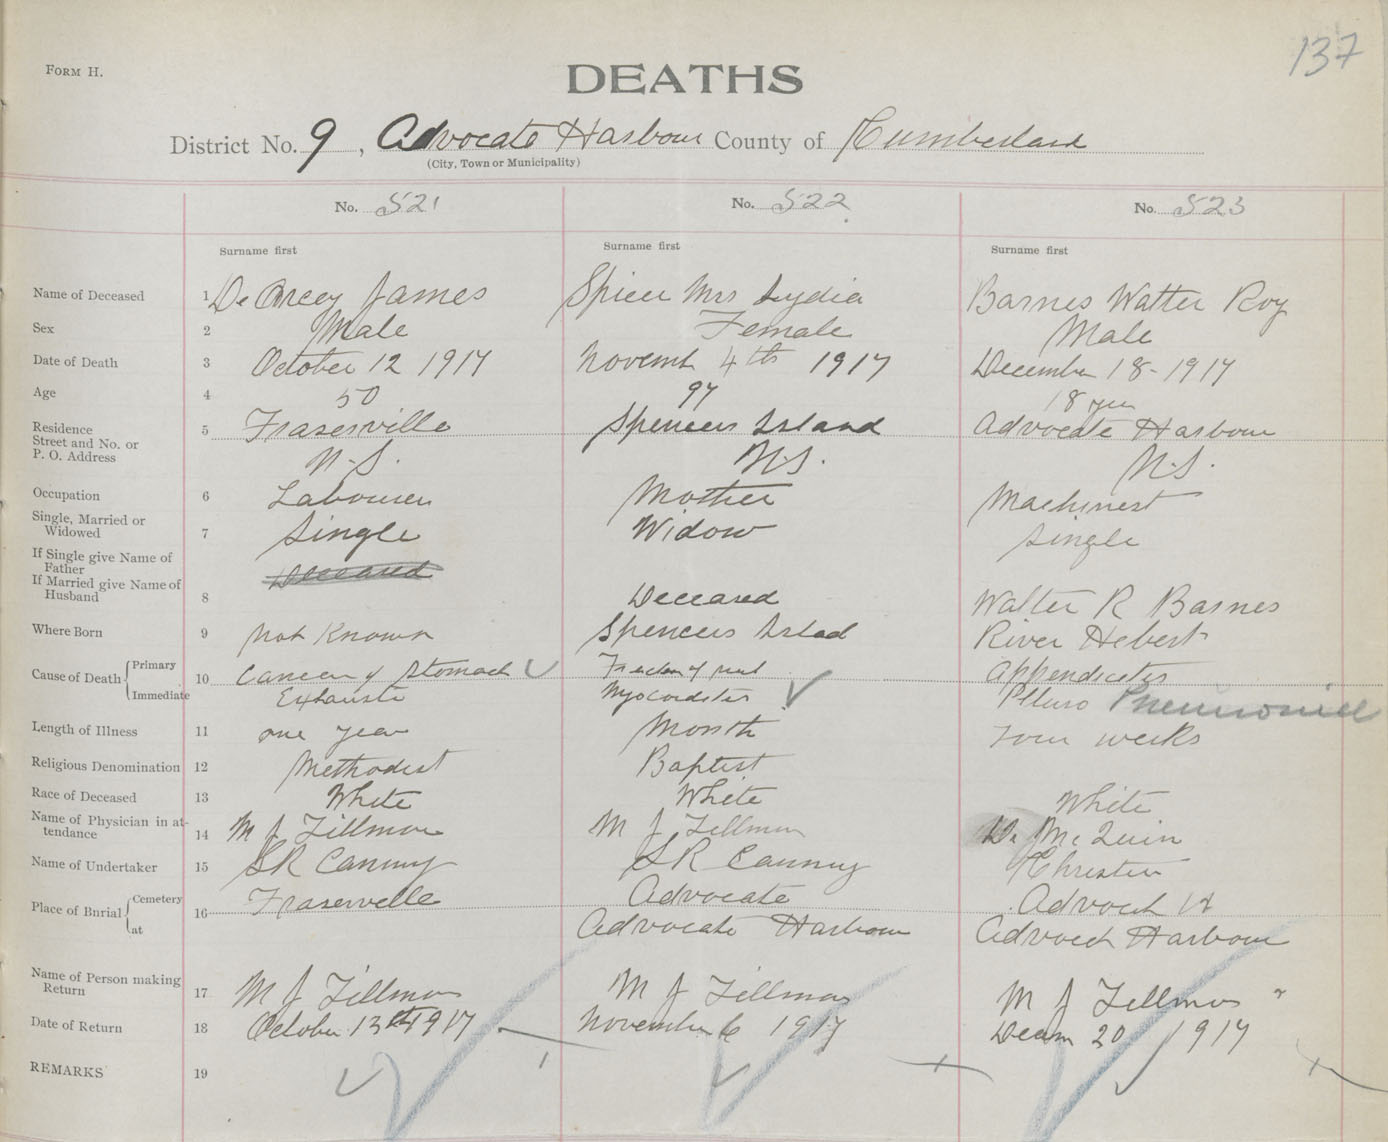 137
FORM H.
DEATHS
District No. 9, Advocate Harbour County of Cumberland
(City, Town or Municipality)
No. 521 No. 522 No. 523
Surname first Surname first Surname first
Name of Deceased 1 De Arcey James Spicer Mrs Lydia Barnes Walter Roy
Sex 2 Male Female Male
Date of Death 3 October 12 1917 Novemb 4th 1917 December 18-1917
Age 4 50 97 18 yrs
Residence
Street and No. or
P. O. Address 5 Fraserville Spencers Island Advocate Harbour
N.S. N.S. N.S.
Occupation 6 Labourer Mother Machinest
Single, Married or
Widowed 7 Single Widow Single
If Single give Name of
Father Deceased
If Married give Name of
Husband 8 Deceased Walter R Barnes
Where Born 9 Not Known Spencers Islad River Hebert
Cause of Death Primary 10 Cancer of Stomach of Appendicites
Immediate Exhauste Myocardites Plluro Pneumonia
Length of Illness 11 one year Month Four weeks
Religious Denomination 12 Methodist Baptist
Race of Deceased 13 White White White
Name of Physician in at-
tendance 14 M J Tillmon M J Tillmon Dr McQuin
Name of Undertaker 15 SR Canning SR Canning Christie
Place of Burial Cemetery 16 Fraserville Advocate Advoct H
at Advocate Harbour Advoct Harbour
Name of Person making
Return 17 M J Tillmon M J Tillmon M J Tillmon
Date of Return 18 October 13th 1917 November 6 1917 Decem 20 1917
REMARKS 19